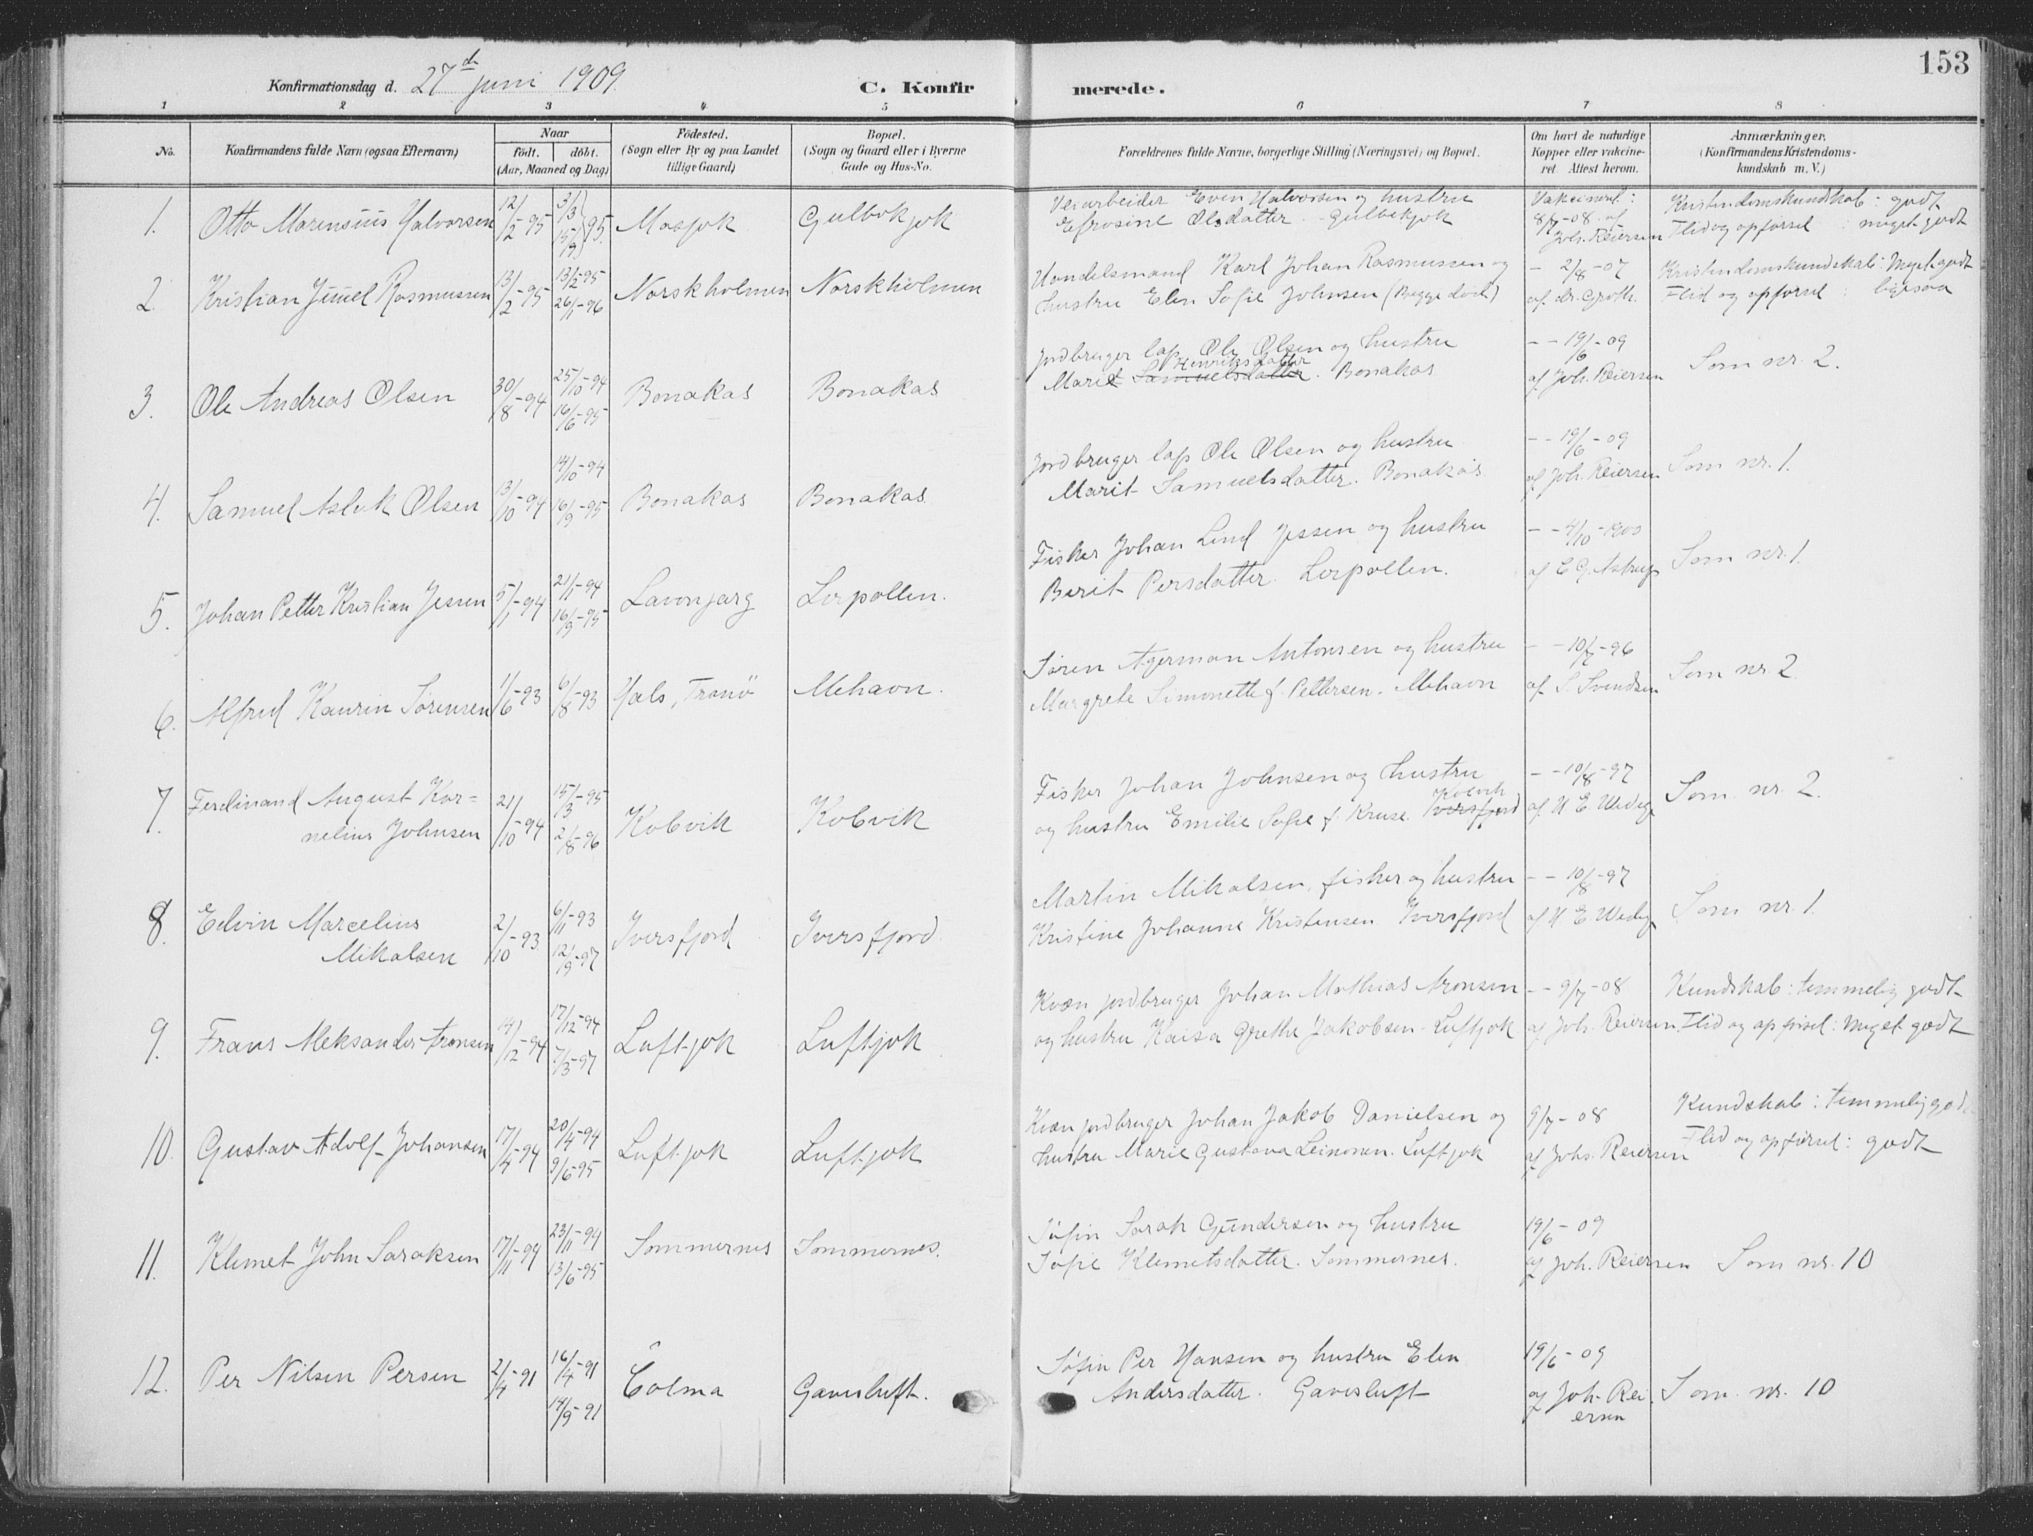 153
Konfirmationsdag d. 27de juni 1909.
C. Konfirmerede.
1 2 3 4 5 6 7 8
No.
Konfirmandens fulde Navn (ogsaa Efternavn)
Naar
født. døbt.
(Aar, Maaned og Dag)
Fødested.
(Sogn eller By og paa Landet
tillige Gaard)
Bopæl.
(Sogn og Gaard eller i Byerne
Gade og Hus-No.
Forældrenes fulde Navne, borgerlige Stilling (Næringsvei) og Bopæl.
Om havt de naturlige
Kopper eller vakcine-
ret Attest herom.
Anmærkninger.
(Konfirmandens Kristendoms-
kundskab m. V.)
1. Otto Marensius Halvorsen 12/2-95 3/3 15/9 95. Masjok Gulbokjok
Veiarbeider Even Halvorsen og hustru
Efrosine Olsdatter. Gulbokjok
Vakcineret:
8/7-08 af
Joh. Reiersen
Kristendomskundskab: godt
Flid og opførsel: meget godt
2. Kristian Juuel Rasmussen 13/2-95 13/2-95 26/1-96 Norskholmen Norskholmen
Handelsmand Karl Johan Rasmussen og
hustru Elen Sofie Johnsen (Begge død)
- 2/8-07
af dr. Groth.
Kristendomskundskab: Meget godt
Flid og opførsel: ligesaa
3. Ole Andreas Olsen 30/8-94 25/10-94 16/6-95 Bonakas Bonakas
Jordbruger lap Ole Olsen og hustru
Henriksdatter
Marit Samuelsdatter. Bonakas
- - 19/6-09
af Joh. Reiersen
Som nr. 2.
4. Samuel Aslak Olsen 13/10-94 14/10-94 16/9-95 Bonakas Bonakas
Jordbruger lap Ole Olsen og hustru
Marit Samuelsdatter. Bonakas
- - 19/6-09
af Joh. Reiersen
Som nr. 1.
5. Johan Petter Kristian Jessen 5/1-94 21/1-94 16/9-95 Lavonjarg Lerpollen.
Fisker Johan Lind Jessen og hustru
Berit Persdatter. Lerpollen.
- - 4/10-1900
af E G. Astrup
Som nr. 1.
6. Alfred Kaurin Sørensen 1/6-93 6/8-93 Hals, Tranø Mehavn.
Søren Agerman Antonsen og hustru
Margrete Simonette f. Pettersen. Mehavn
- - 10/7-96
af S. Svendsen
Som nr 2.
7. Ferdinand August Kor=
nelius Johnsen 21/10-94 15/3-95 2/8-96 Kobvik Kobvik
Fisker Johan Johnsen og hustru
Kobvik
og hustru Emilie Sofie f. Kruse. Iversfjord
- - 10/8-97
af H E Wedege
Som nr. 2.
8. Edvin Marcelius
Mikalsen 2/10-93 6/11-93 12/9-97 Iversfjord Iversfjord.
Martin Mikalsen, fisker og hustru
Kristine Johanne Kristensen Iversfjord
- - 10/8-97
af H E Wedege
Som nr. 1.
9. Frans Aleksander Aronsen 14/12-94 17/12-94 7/3-97 Luftjok Luftjok
Kvæn jordbruger Johan Mathias Aronsen
og hustru Kaisa Grethe Jakobsen. Luftjok
- - 9/7-08
af Joh. Reiersen.
Kundskab: temmelig godt
Flid og opførsel: Meget godt
10. Gustav Adolf Johansen 17/4-94 20/4-94 9/6-95 Luftjok Luftjok
Kvæn jordbruger Johan Jakob Danielsen og
hustru Marie Gustava Leinonen. Luftjok
9/7-08
af Johs. Reiersen
Kundskab: temmelig godt
Flid og opførsel: godt
11. Klemet John Saraksen 17/11-94 23/11-94 13/6-95 Sommernes Sommernes.
Søfin Sarak Gundersen og hustru
Sofie Klemetsdatter. Sommernes.
19/6-09
af Joh. Reiersen
Som nr. 10
12. Per Nilsen Persen 2/4-91 16/4-91 14/9-91 Čolma Gavesluft.
Søfin Per Hansen og hustru Elen
Andersdatter. Gavesluft
19/6-09
af Joh. Rei
ersen
Som nr. 10